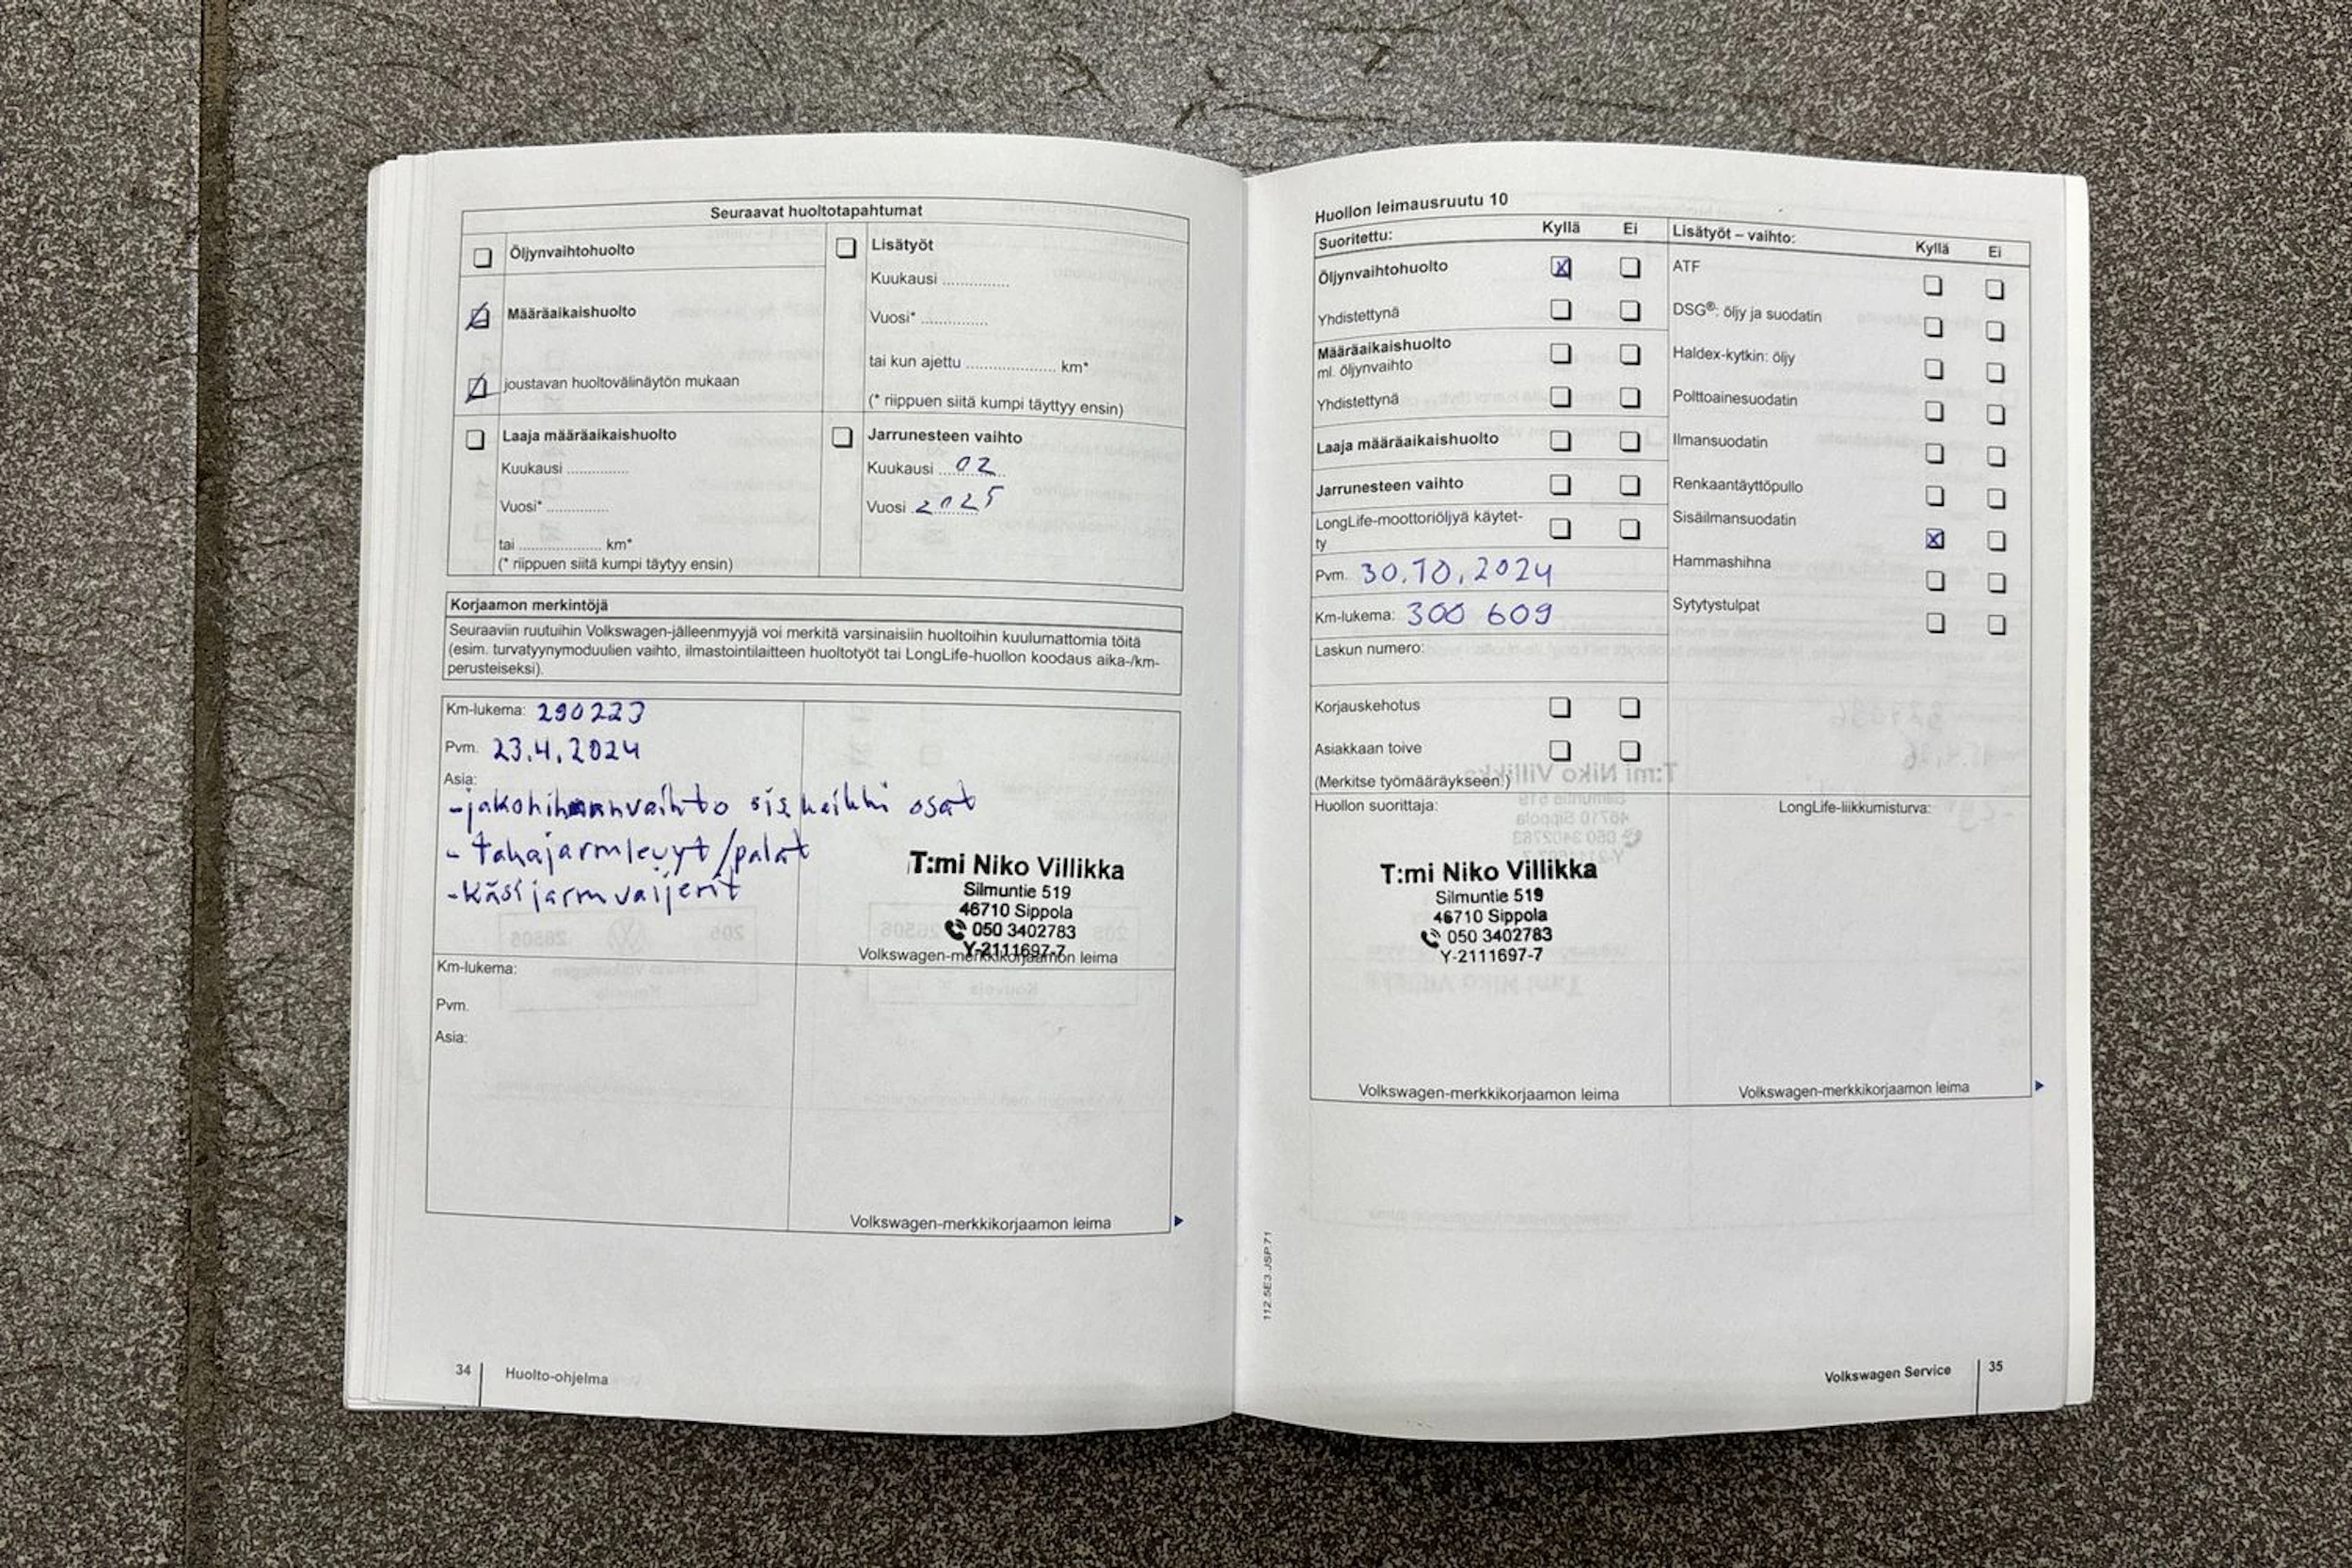 Seuraavat huoltotapahtumat
Öljynvaihtohuolto
Määräaikaishuolto
joustavan huoltovälinäytön mukaan
Lisätyöt
Kuukausi ...............
Vuosi* ...............
tai kun ajettu .................... km*
(* riippuen siitä kumpi täyttyy ensin)
Laaja määräaikaishuolto
Kuukausi ..............
Vuosi* ..............
tai .................... km*
(* riippuen siitä kumpi täytyy ensin)
Jarrunesteen vaihto
Kuukausi 02
Vuosi 2025
Korjaamon merkintöjä
Seuraaviin ruutuihin Volkswagen-jälleenmyyjä voi merkitä varsinaisiin huoltoihin kuulumattomia töitä
(esim. turvatyynymoduulien vaihto, ilmastointilaitteen huoltotyöt tai LongLife-huollon koodaus aika-/km-
perusteiseksi).
Km-lukema: 290223
Pvm. 23.4.2024
Asia:
-jakohihnanvaihto sis kaikki osat
- takajarrulevyt/palat
-käsijarruvaijerit
T:mi Niko Villikka
Silmuntie 519
46710 Sippola
050 3402783
Y-2111697-7
Volkswagen-merkkikorjaamon leima
Km-lukema:
Pvm.
Asia:
Volkswagen-merkkikorjaamon leima
34 Huolto-ohjelma
Huollon leimausruutu 10
Suoritettu: Kyllä Ei
Öljynvaihtohuolto
Yhdistettynä
Määräaikaishuolto
ml. öljynvaihto
Yhdistettynä
Laaja määräaikaishuolto
Jarrunesteen vaihto
LongLife-moottoriöljyä käytet-
ty
Pvm. 30.10.2024
Km-lukema: 300 609
Laskun numero:
Korjauskehotus
Asiakkaan toive
(Merkitse työmääräykseen.)
Lisätyöt – vaihto: Kyllä Ei
ATF
DSG®: öljy ja suodatin
Haldex-kytkin: öljy
Polttoainesuodatin
Ilmansuodatin
Renkaantäyttöpullo
Sisäilmansuodatin
Hammashihna
Sytytystulpat
Huollon suorittaja:
T:mi Niko Villikka
Silmuntie 519
46710 Sippola
050 3402783
Y-2111697-7
Volkswagen-merkkikorjaamon leima
LongLife-liikkumisturva:
Volkswagen-merkkikorjaamon leima
112.5E3.JSP.71
Volkswagen Service 35